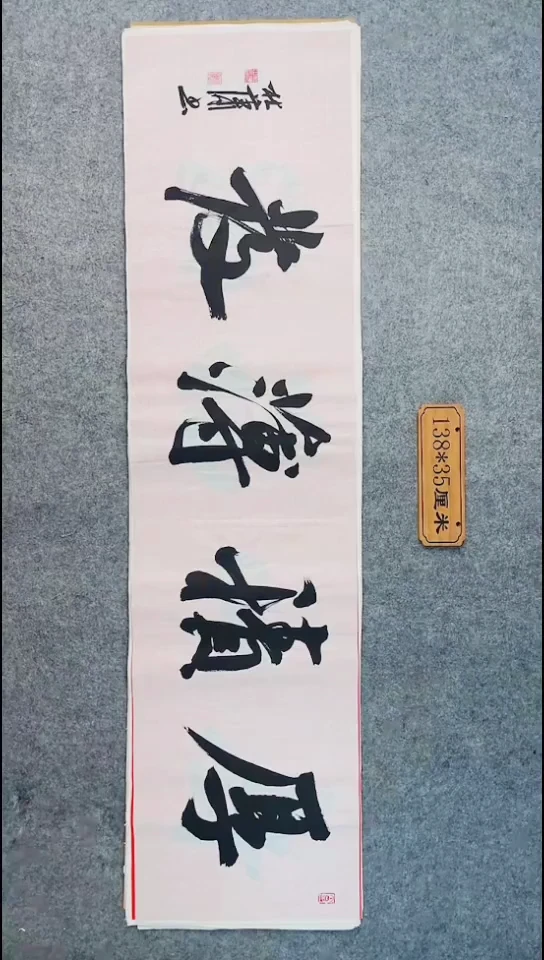 厚積薄發
138*35厘米